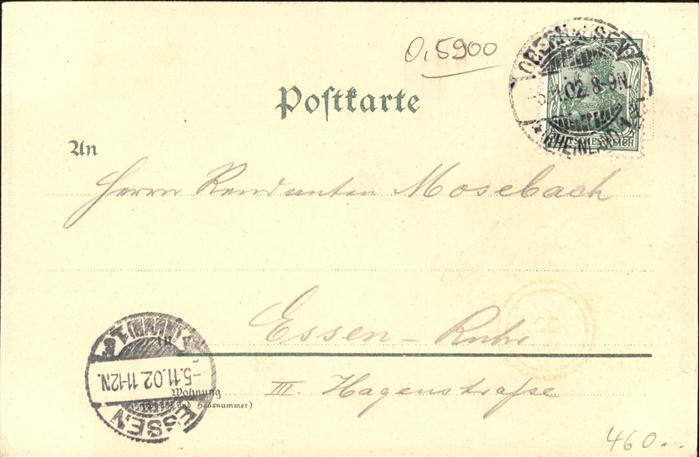 0,5900
OBERHAUSEN
5.11.02. 8-9N.
RHEINLAND
Postkarte
An
Herrn Rendanten Mosebach
in
Essen-Ruhr
Wohnung
III. Hagenstraße
ESSEN
-5.11.02.11-12N.
460...